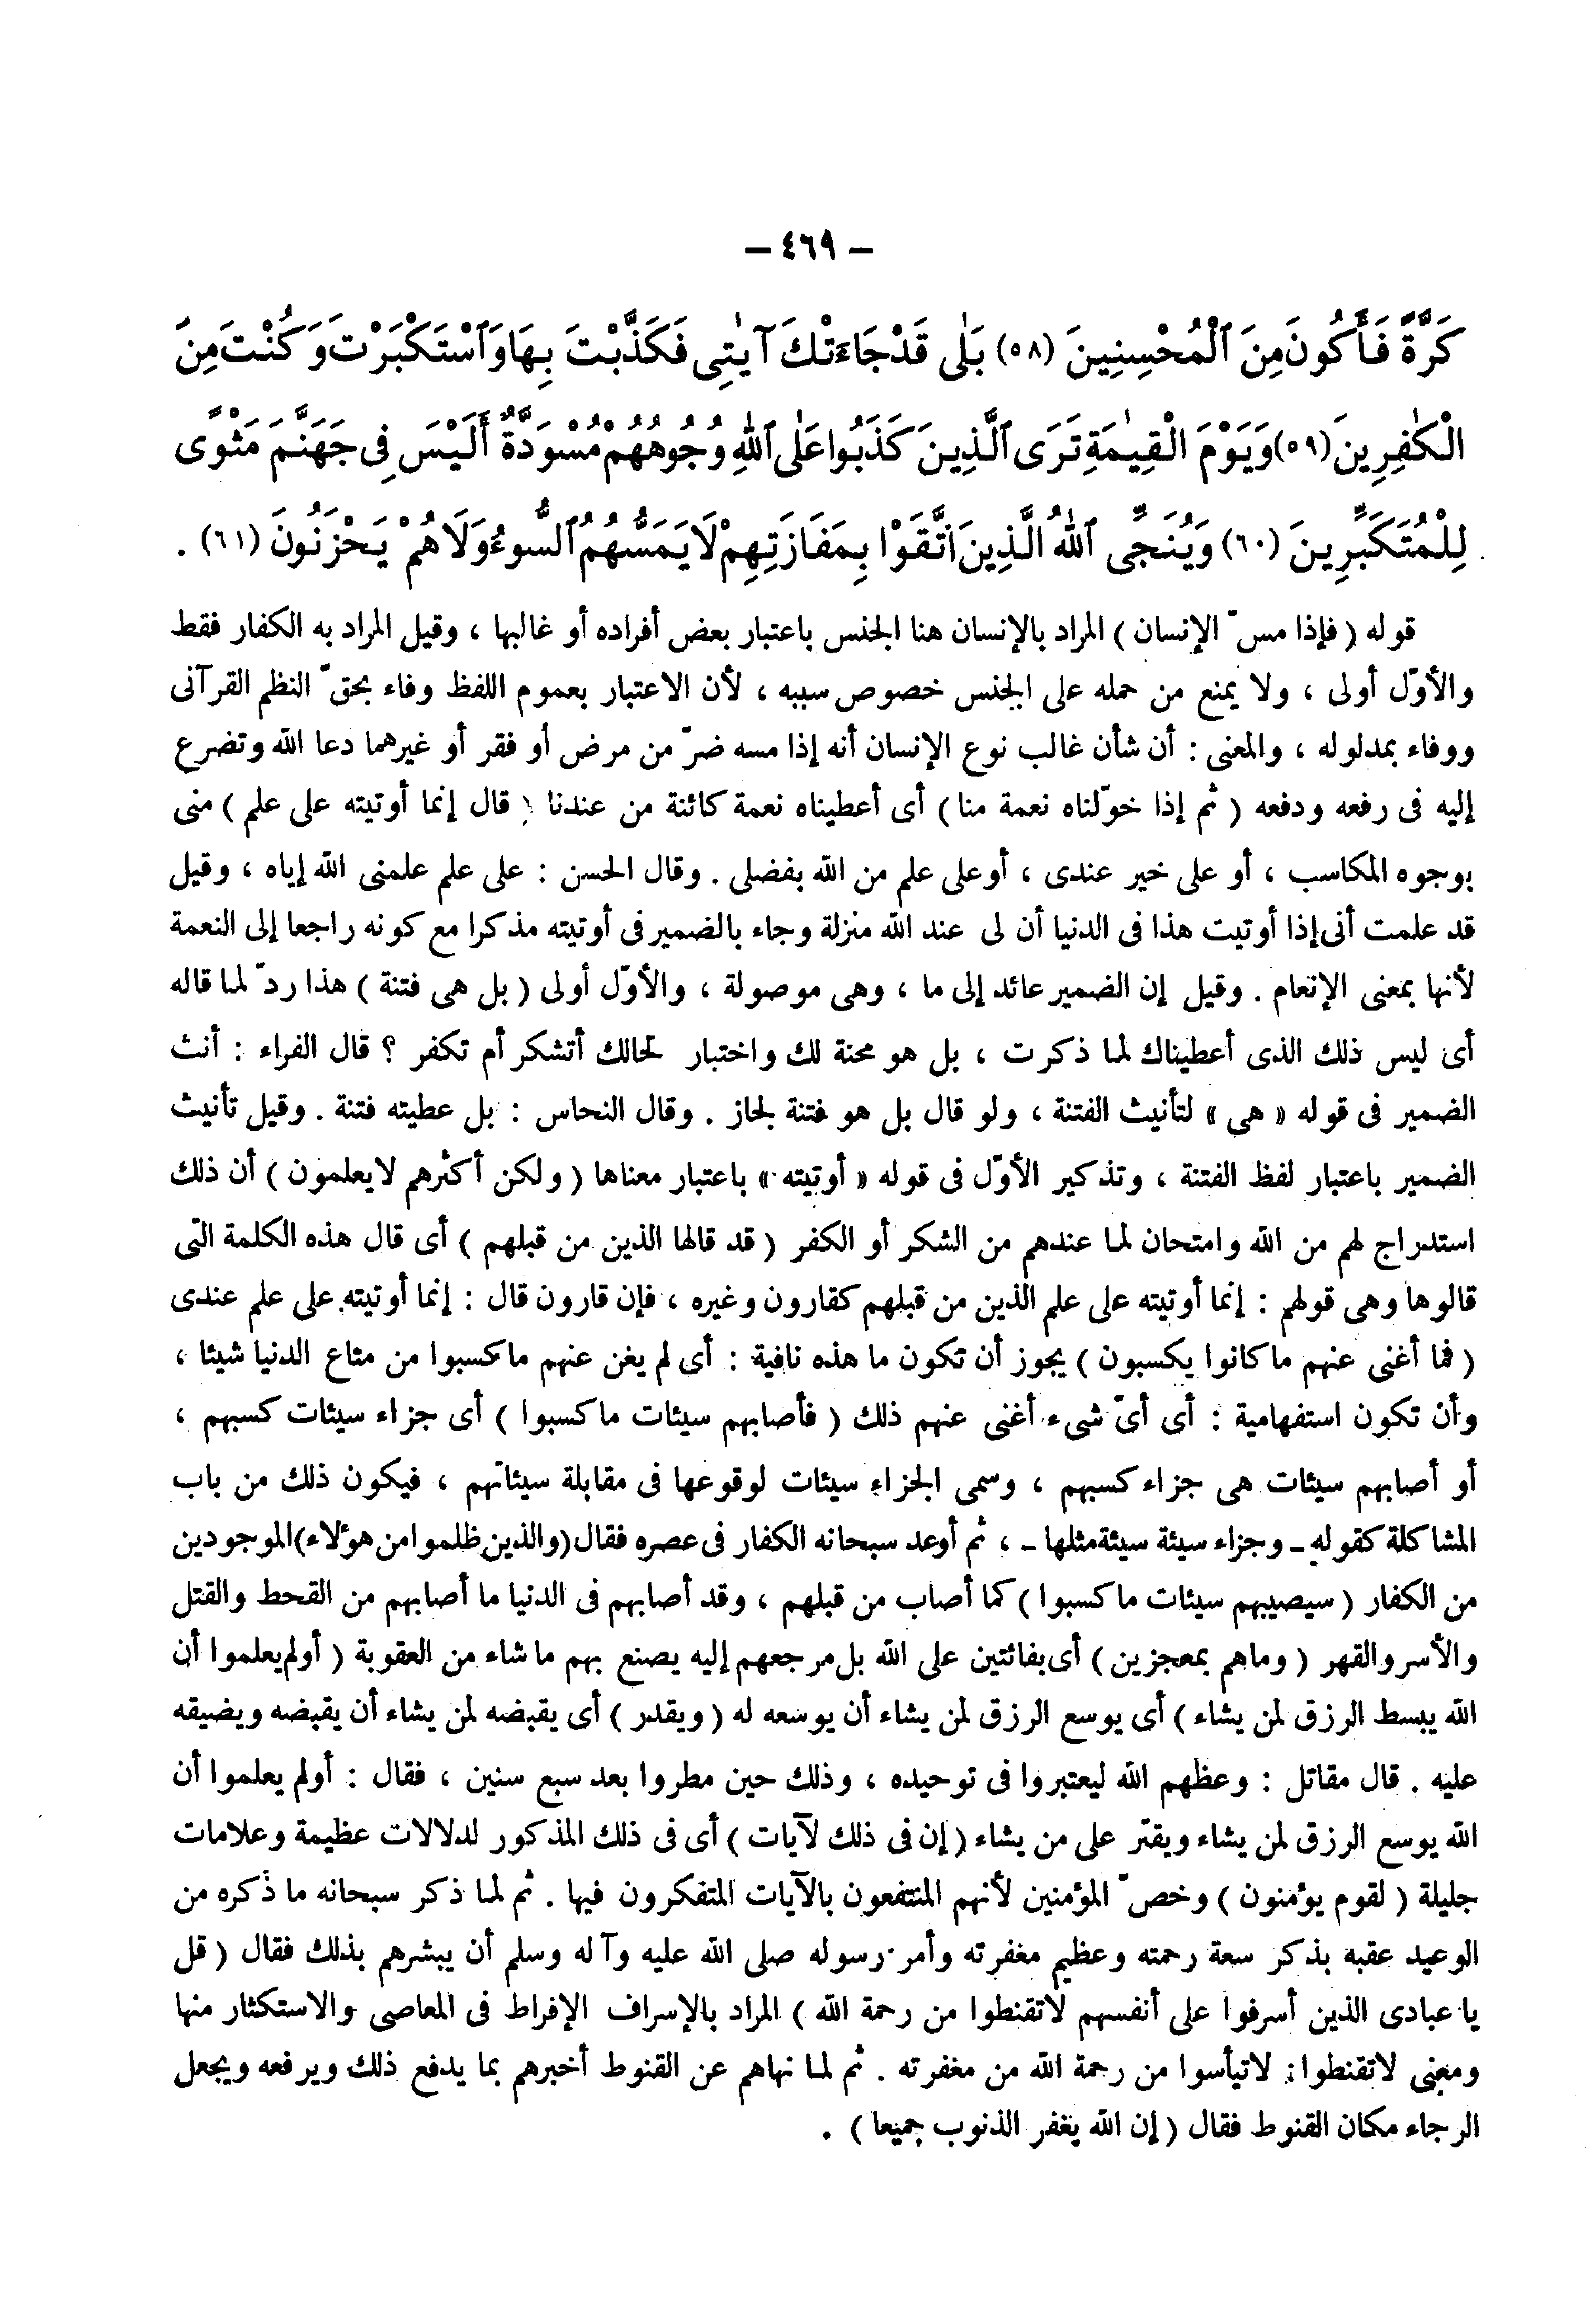 – ٤٦٩ –
كَرَّةً فَأَكُونَ مِنَ ٱلْمُحْسِنِينَ (٥٨) بَلٰى قَدْ جَاءَتْكَ آيٰتِى فَكَذَّبْتَ بِهَا وَٱسْتَكْبَرْتَ وَكُنْتَ مِنَ
الْكٰفِرِينَ (٥٩) وَيَوْمَ الْقِيٰمَةِ تَرَى ٱلَّذِينَ كَذَبُوا عَلَى ٱللهِ وُجُوهُهُمْ مُسْوَدَّةٌ أَلَيْسَ فِى جَهَنَّمَ مَثْوًى
لِلْمُتَكَبِّرِينَ (٦٠) وَيُنَجِّى ٱللهُ الَّذِينَ اتَّقَوْا بِمَفَازَتِهِمْ لَا يَمَسُّهُمُ ٱلسُّوءُ وَلَا هُمْ يَحْزَنُونَ (٦١) .
قوله ( فإذا مسّ الإنسان ) المراد بالإنسان هنا الجنس باعتبار بعض أفراده أو غالبها ، وقيل المراد به الكفار فقط
والأوّل أولى ، ولا يمنع من حمله على الجنس خصوص سببه ، لأن الاعتبار بعموم اللفظ وفاء بحقّ النظم القرآنى
ووفاء بمدلوله ، والمعنى : أن شأن غالب نوع الإنسان أنه إذا مسه ضرّ من مرض أو فقر أو غيرهما دعا الله وتضرع
إليه فى رفعه ودفعه ( ثم إذا خوّلناه نعمة منا ) أى أعطيناه نعمة كائنة من عندنا ( قال إنما أوتيته على علم ) منى
بوجوه المكاسب ، أو على خير عندى ، أو على علم من الله بفضلى . وقال الحسن : على علم علمنى الله إياه ، وقيل
قد علمت أنى إذا أوتيت هذا فى الدنيا أن لى عند الله منزلة وجاء بالضمير فى أوتيته مذكرا مع كونه راجعا إلى النعمة
لأنها بمعنى الإنعام . وقيل إن الضمير عائد إلى ما ، وهى موصولة ، والأوّل أولى ( بل هى فتنة ) هذا ردّ لما قاله
أى ليس ذلك الذى أعطيناك لما ذكرت ، بل هو محنة لك واختبار لحالك أتشكر أم تكفر ؟ قال الفراء : أنث
الضمير فى قوله « هى » لتأنيث الفتنة ، ولو قال بل هو فتنة لجاز . وقال النحاس : بل عطيته فتنة . وقيل تأنيث
الضمير باعتبار لفظ الفتنة ، وتذكير الأوّل فى قوله « أوتيته » باعتبار معناها ( ولكن أكثرهم لايعلمون ) أن ذلك
استدراج لهم من الله وامتحان لما عندهم من الشكر أو الكفر ( قد قالها الذين من قبلهم ) أى قال هذه الكلمة التى
قالوها وهى قولهم : إنما أوتيته على علم الذين من قبلهم كقارون وغيره ، فإن قارون قال : إنما أوتيته على علم عندى
( فما أغنى عنهم ما كانوا يكسبون ) يجوز أن تكون ما هذه نافية : أى لم يغن عنهم ما كسبوا من متاع الدنيا شيئا ،
وأن تكون استفهامية : أى أىّ شىء أغنى عنهم ذلك ( فأصابهم سيئات ما كسبوا ) أى جزاء سيئات كسبهم ،
أو أصابهم سيئات هى جزاء كسبهم ، وسمى الجزاء سيئات لوقوعها فى مقابلة سيئاتهم ، فيكون ذلك من باب
المشاكلة كقوله ـ وجزاء سيئة سيئة مثلها ـ ، ثم أوعد سبحانه الكفار فى عصره فقال ( والذين ظلموا من هؤلاء ) الموجودين
من الكفار ( سيصيبهم سيئات ما كسبوا ) كما أصاب من قبلهم ، وقد أصابهم فى الدنيا ما أصابهم من القحط والقتل
والأسر والقهر ( وماهم بمعجزين ) أى بفائتين على الله بل مرجعهم إليه يصنع بهم ماشاء من العقوبة ( أولم يعلموا أن
الله يبسط الرزق لمن يشاء ) أى يوسع الرزق لمن يشاء أن يوسعه له ( ويقدر ) أى يقبضه لمن يشاء أن يقبضه ويضيقه
عليه . قال مقاتل : وعظهم الله ليعتبروا فى توحيده ، وذلك حين مطروا بعد سبع سنين ، فقال : أولم يعلموا أن
الله يوسع الرزق لمن يشاء ويقتر على من يشاء ( إن فى ذلك لآيات ) أى فى ذلك المذكور لدلالات عظيمة وعلامات
جليلة ( لقوم يؤمنون ) وخصّ المؤمنين لأنهم المنتفعون بالآيات المتفكرون فيها . ثم لما ذكر سبحانه ما ذكره من
الوعيد عقبه بذكر سعة رحمته وعظيم مغفرته وأمر رسوله صلى الله عليه وآله وسلم أن يبشرهم بذلك فقال ( قل
يا عبادى الذين أسرفوا على أنفسهم لاتقنطوا من رحمة الله ) المراد بالإسراف الإفراط فى المعاصى والاستكثار منها
ومعنى لاتقنطوا : لاتيأسوا من رحمة الله من مغفرته . ثم لما نهاهم عن القنوط أخبرهم بما يدفع ذلك ويرفعه ويجعل
الرجاء مكان القنوط فقال ( إن الله يغفر الذنوب جميعا ) .